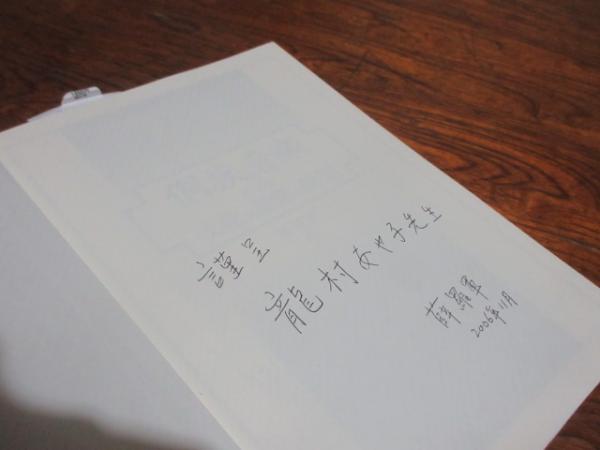 謹呈
龍村あや子先生
薛羅軍
2006年11月